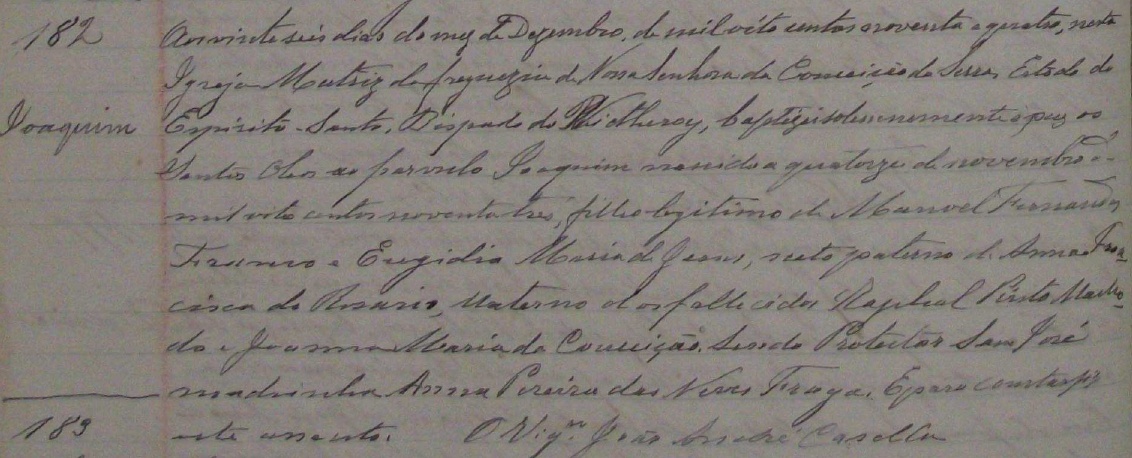 182
Aos vinte seis dias do mez de Dezembro de mil oito centos noventa e quatro, nesta
Igreja Matriz da freguezia de Nossa Senhora da Conceição da Serra, Estado do
Joaquim
Espirito-Santo, Bispado do Nictheroy, baptizei solemnemente e puz os
Santos Oleos ao parvulo Joaquim nascido a quatorze de novembro de
mil oito centos noventa tres, filho legitimo de Manoel Fernandes
Franco e Eregidia Maria de Jesus, neto paterno de Anna Fran-
cisca do Rosario, Materno dos fallecidos Raphael Pinto Macha-
do e Joanna Maria da Conceição. Sendo Protector San José
madrinha Anna Pereira das Neves Fraga. E para constar fiz
este assento. O Vigrº João André Casella
183